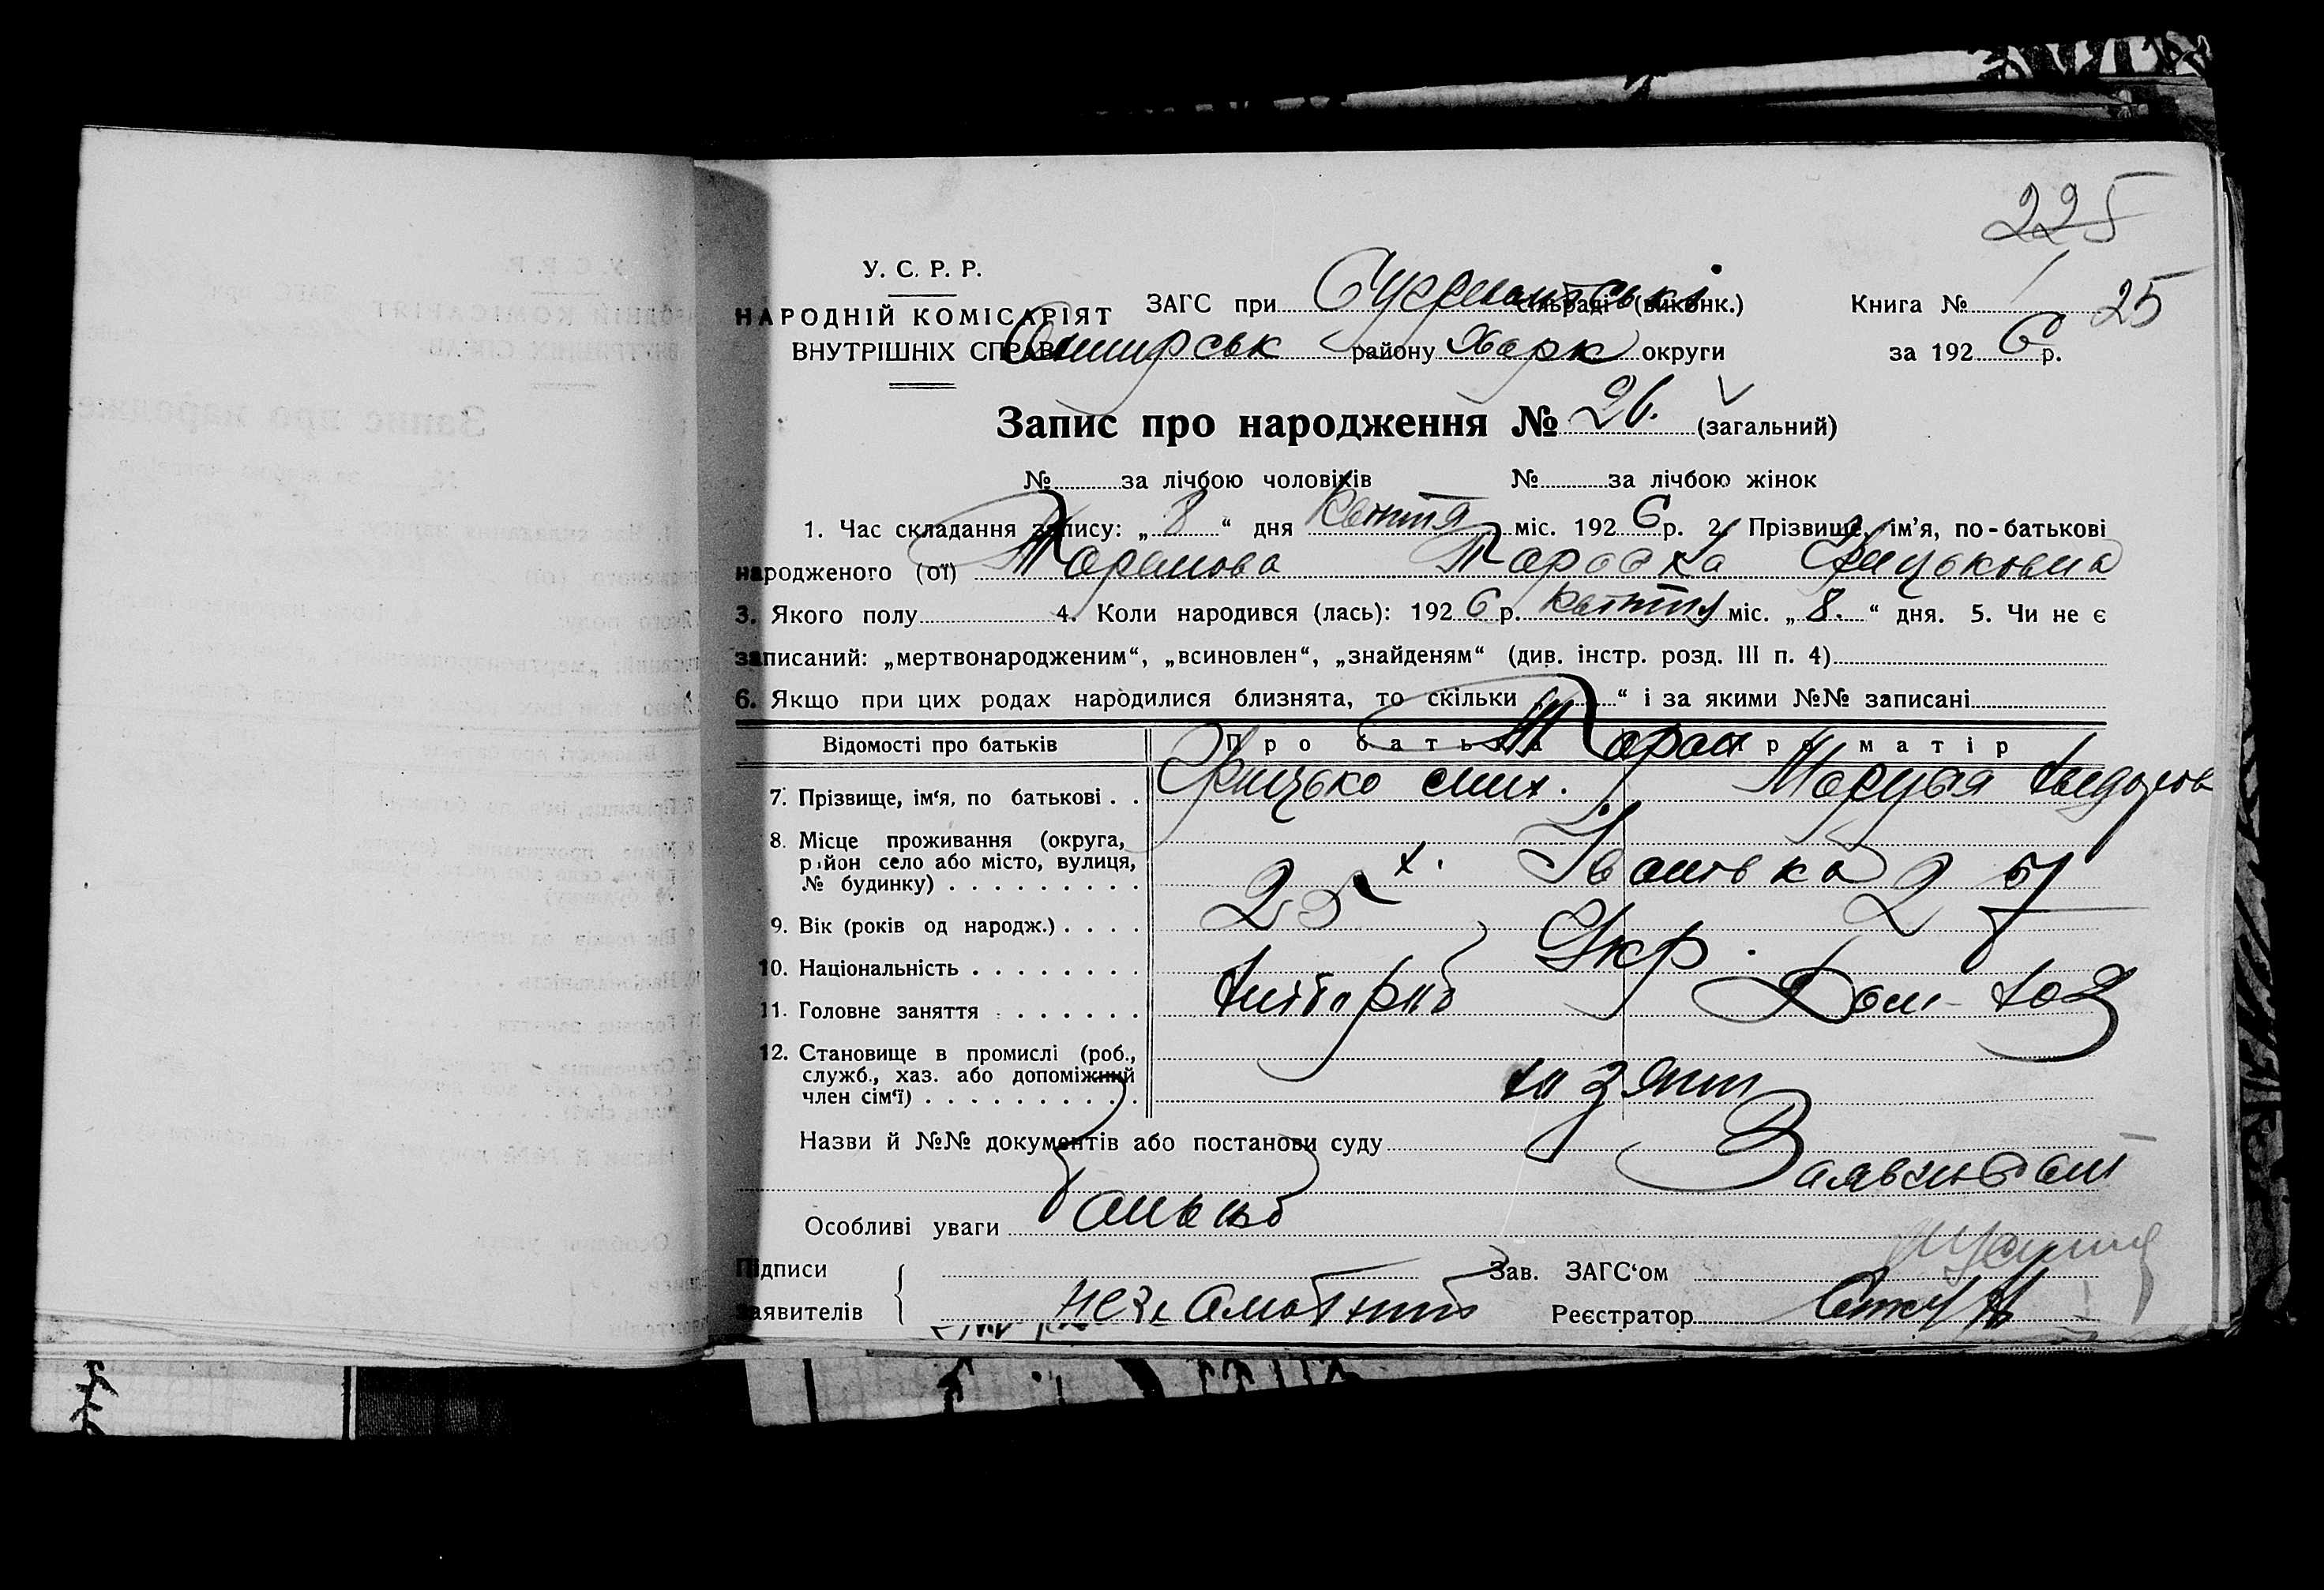 225
У. С. Р. Р.
НАРОДНІЙ КОМІСАРІЯТ
ВНУТРІШНІХ СПРАВ
ЗАГС при сільраді (виконк.)
Книга № 25
районy Харк округи
за 1926 р.
Запис про народження № 26. (загальний)
№ за лічбою чоловіків № за лічбою жінок
1. Час складання запису: „ 8 “ дня Квітня міс. 1926 р. 2. Прізвище, ім’я, по-батькові
народженого (ої) Таранова Параска Грицьковна
3. Якого полу 4. Коли народився (лась): 1926 р. Квітня міс. „ 8. “ дня. 5. Чи не є
записаний: „мертвонародженим“, „всиновлен“, „знайденям“ (див. інстр. розд. III п. 4)
6. Якщо при цих родах народилися близнята, то скільки „ “ і за якими №№ записані
Відомості про батьків Про батька Про матір
Таран
7. Прізвище, ім‘я, по батькові . . Грицько Мих. Маруся
8. Місце проживання (округа,
район село або місто, вулиця,
№ будинку) . . . . . . . . . х. Іванівка
9. Вік (років од народж.) . . . . 25 25
10. Національність . . . . . . . . Укр.
11. Головне заняття . . . . . . . Хлібороб Дом хоз
12. Становище в промислі (роб.,
служб., хаз. або допоміжний
член сім‘ї) . . . . . . . . . . хазяин
Назви й №№ документів або постанови суду
Особливі уваги
Підписи
Заявителів
незаможний
Зав. ЗАГС‘ом
Реєстратор